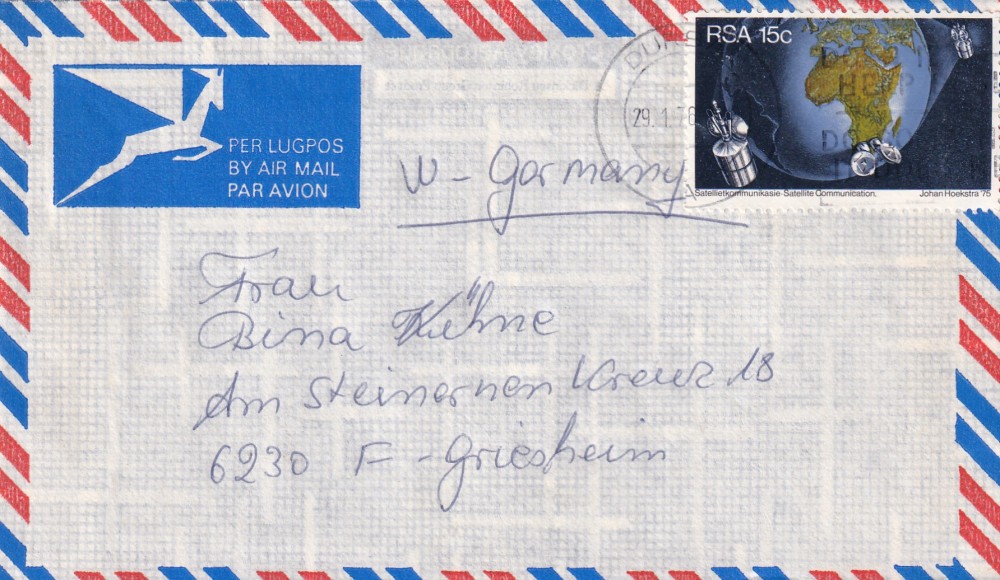 RSA 15c
29.1.76
Satellietkommunikasie-Satellite Communication. Johan Hoekstra '75
PER LUGPOS
BY AIR MAIL
PAR AVION
W-Germany
Frau
Bina Kühne
Am Steinernen Kreuz 18
6230 F-Griesheim